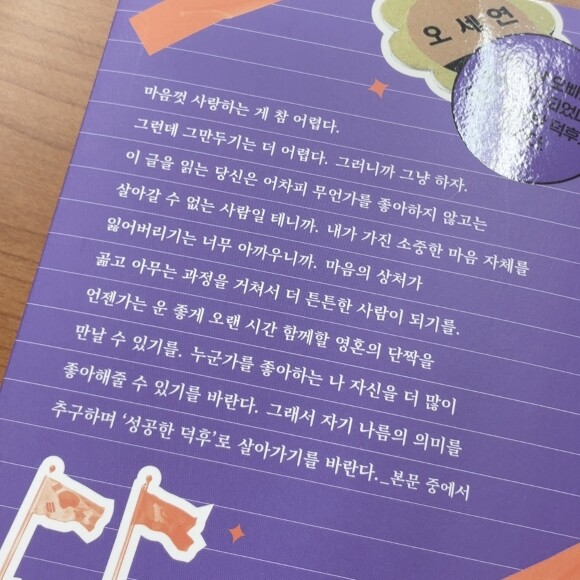 오세연
마음껏 사랑하는 게 참 어렵다.
그런데 그만두기는 더 어렵다. 그러니까 그냥 하자.
이 글을 읽는 당신은 어차피 무언가를 좋아하지 않고는
살아갈 수 없는 사람일 테니까. 내가 가진 소중한 마음 자체를
잃어버리기는 너무 아까우니까. 마음의 상처가
곪고 아무는 과정을 거쳐서 더 튼튼한 사람이 되기를.
언젠가는 운 좋게 오랜 시간 함께할 영혼의 단짝을
만날 수 있기를. 누군가를 좋아하는 나 자신을 더 많이
좋아해줄 수 있기를 바란다. 그래서 자기 나름의 의미를
추구하며 ‘성공한 덕후’로 살아가기를 바란다._본문 중에서